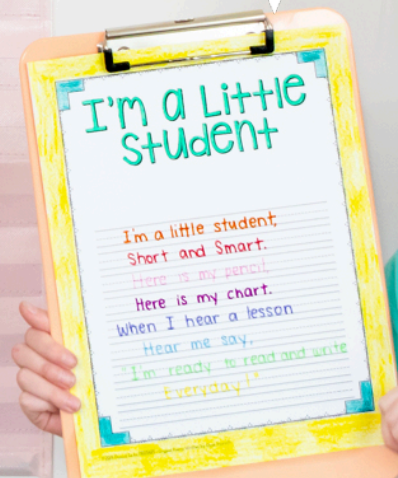 I'm a Little
Student
I'm a little student,
Short and Smart.
Here is my pencil,
Here is my chart.
When I hear a lesson
Hear me say,
"I'm ready to read and write
Everyday!"